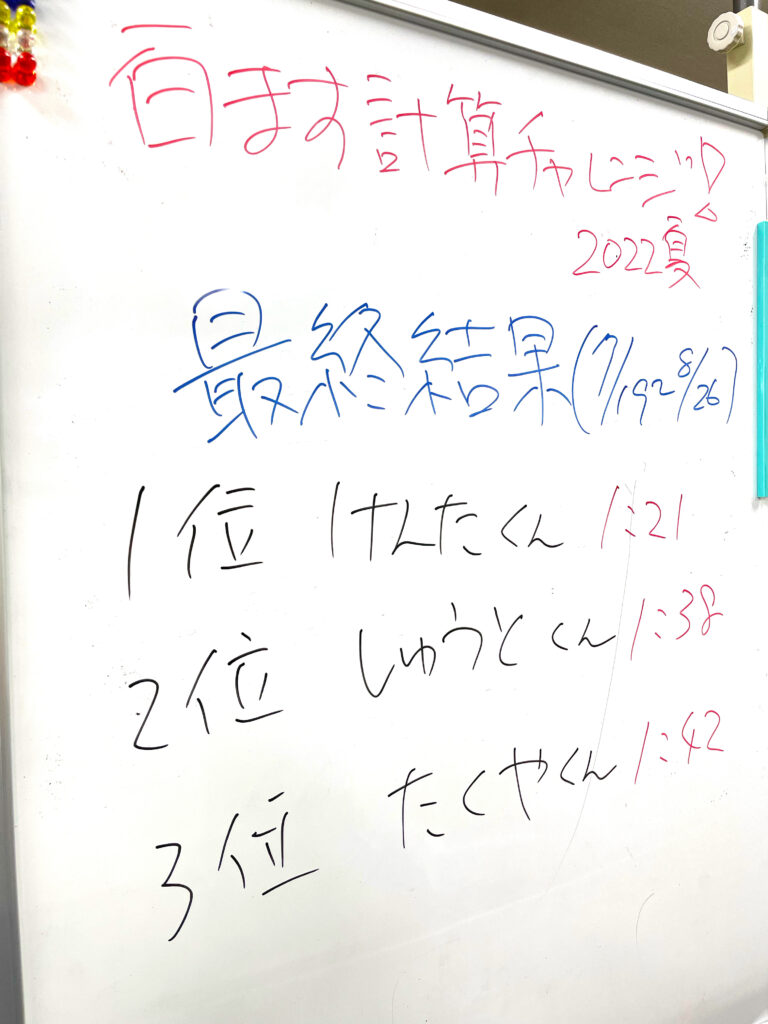 百ます計算チャレンジ!
2022夏
最終結果(7/19~8/26)
1位 けんたくん 1:21
2位 しゅうとくん 1:38
3位 たくやくん 1:42